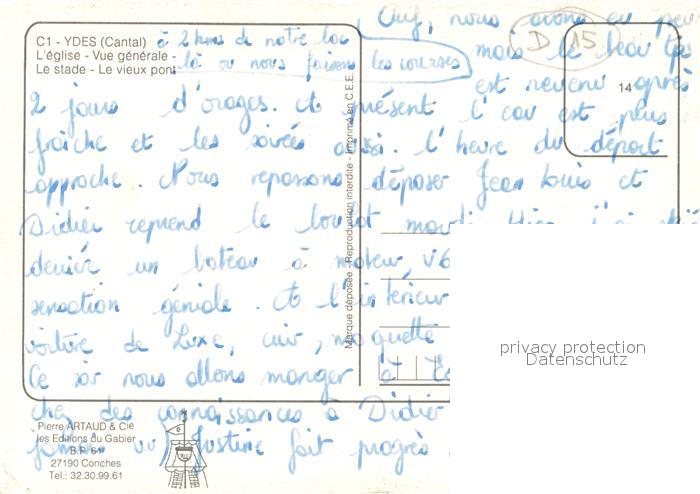 C1 - YDES (Cantal)
L'église - Vue générale -
Le stade - Le vieux pont
à 2 kms de notre lac
là ou nous faisons les courses
Ouf, nous avons eu peur
mais le beau tps
est revenu après
D 15
14
2 jours d'orages. A présent l'eau est plus
fraîche et les soirées aussi. L'heure du départ
approche. Nous repassons déposer Jean Louis et
Didier reprend le boulot mardi. Hier, j'ai
derrière un bateau à moteur, V6
sensation géniale. A l'intérieur
voiture de Luxe, cuir, moquette
Ce soir nous allons manger
chez des connaissances à Didier
vu) Justine fait progrès
Marque déposée - Reproduction interdite - Imprimé en C.E.E.
Pierre ARTAUD & Cie
les Editions du Gabier
B.P. 61
27190 Conches
Tel.: 32.30.99.61
privacy protection
Datenschutz